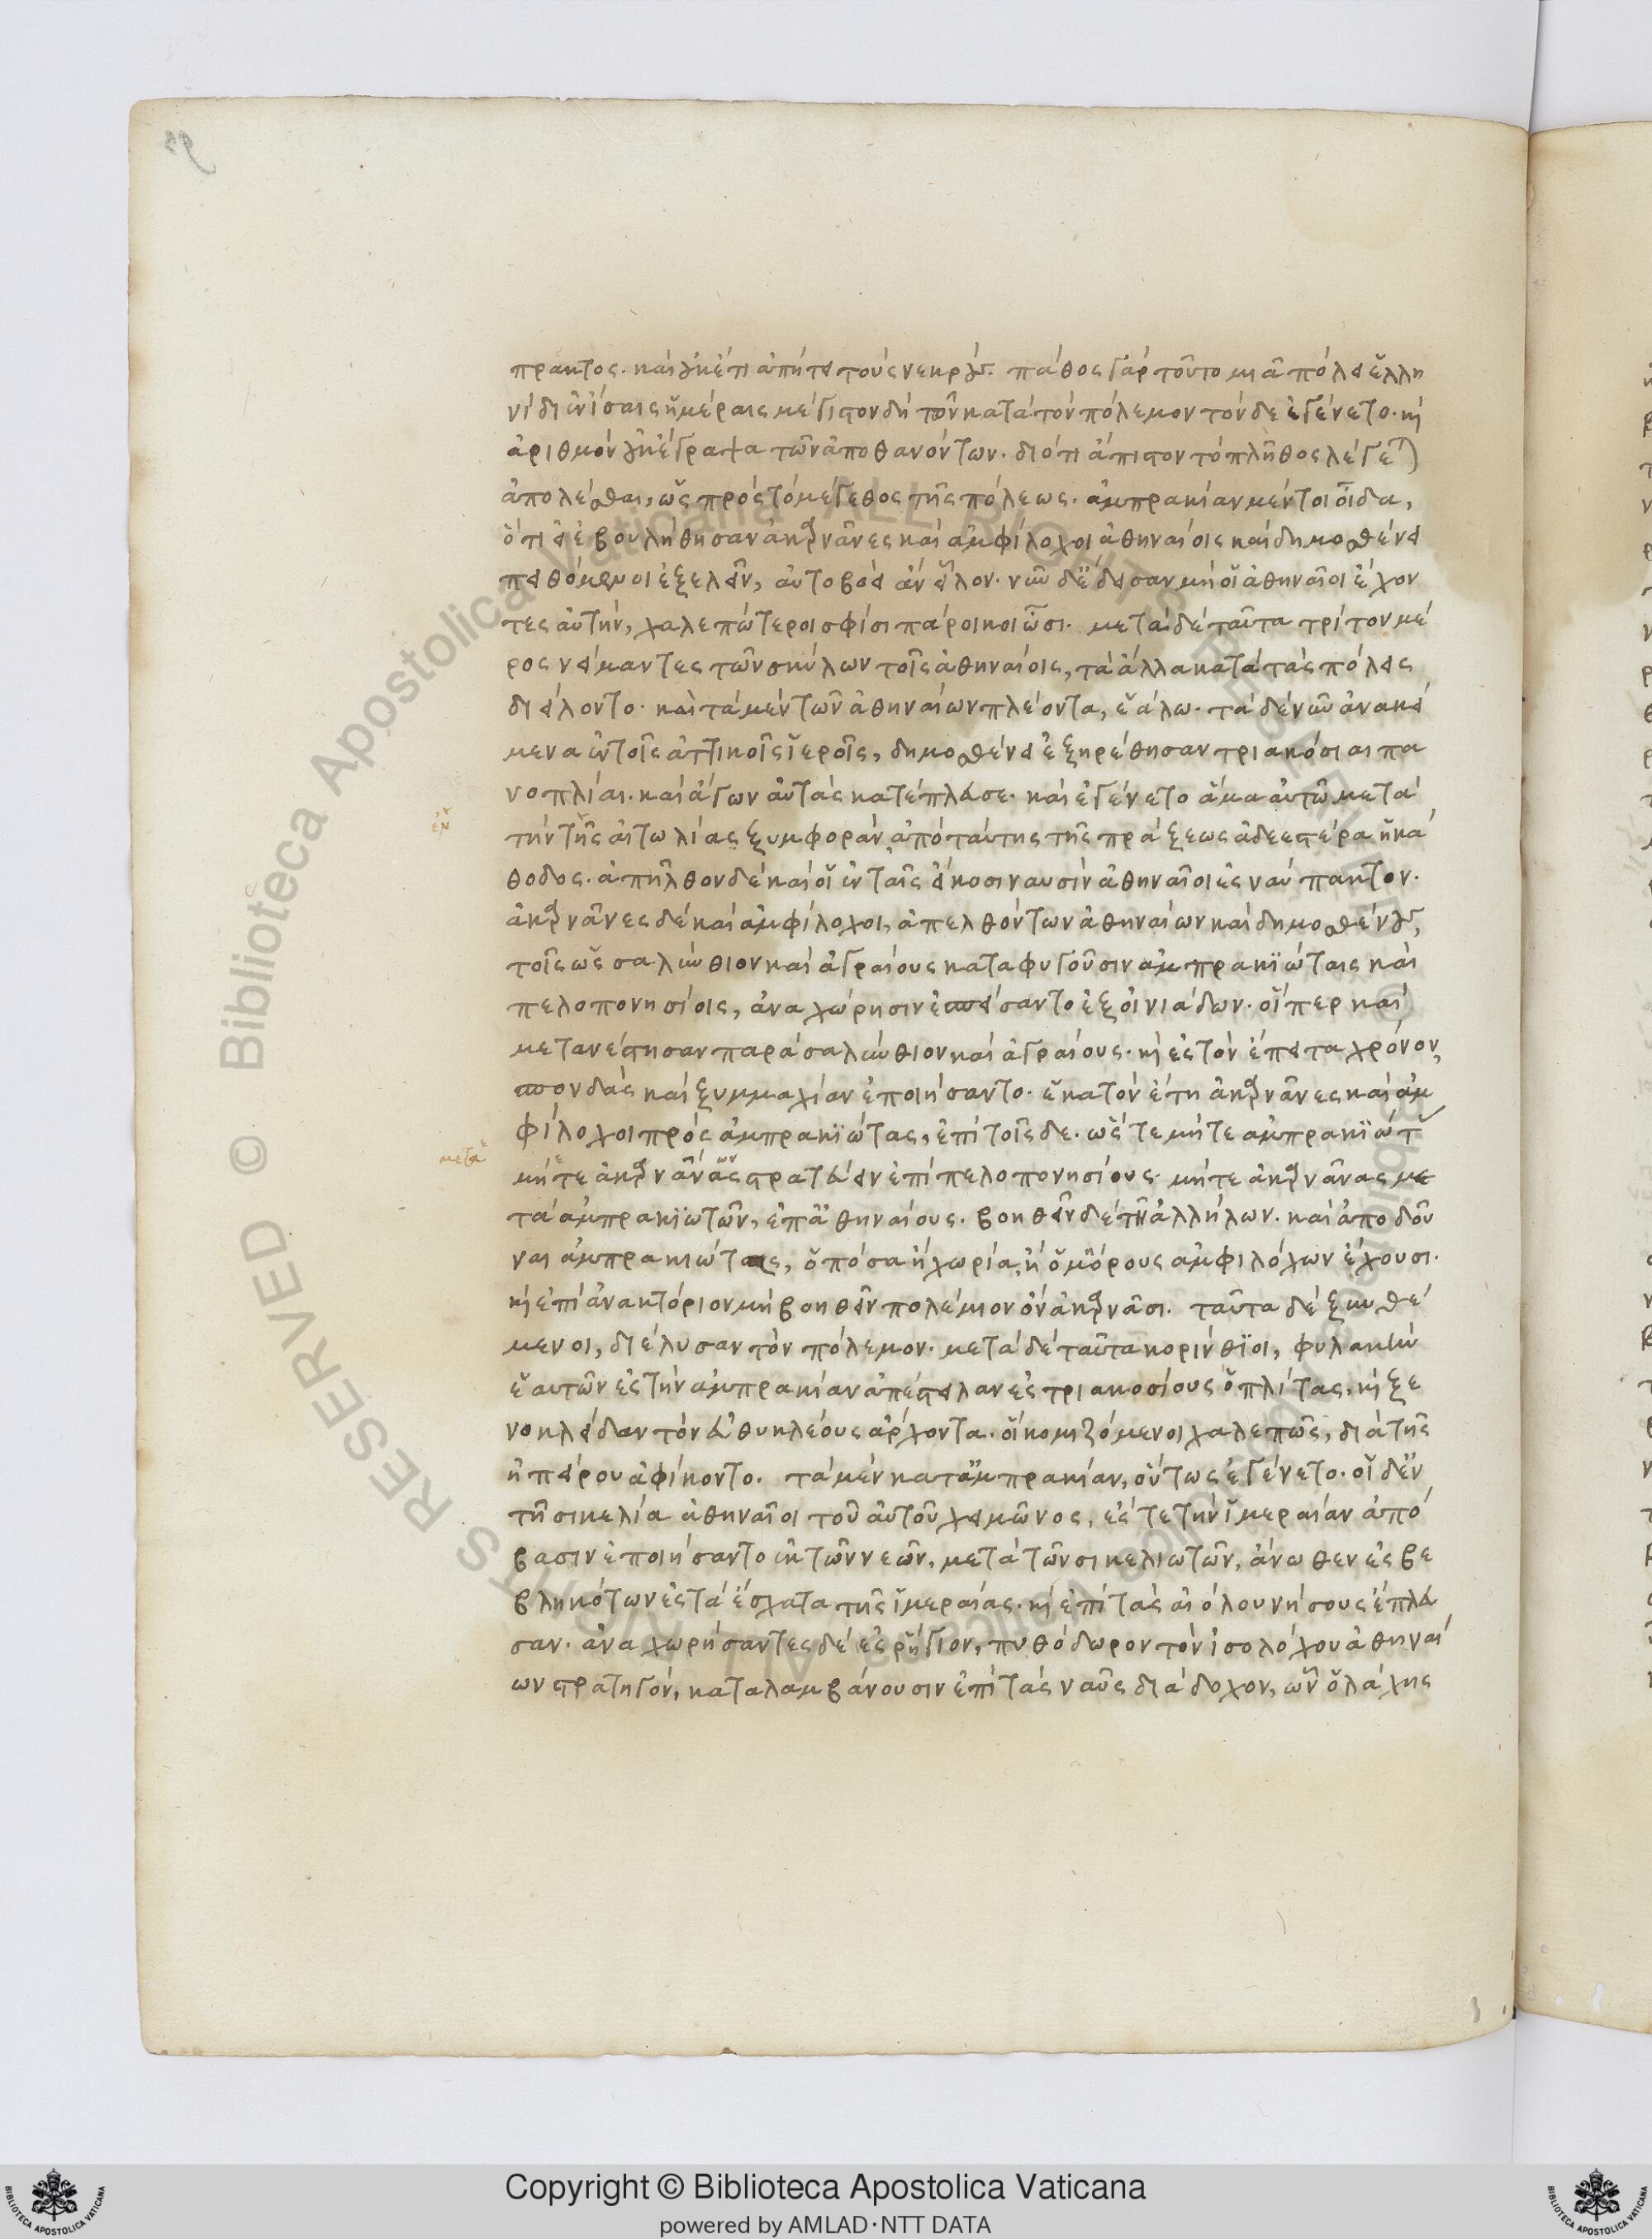 πρακτος. καὶ οὐκέτι ἀπήτει τοὺς νεκρούς. πάθος γὰρ τοῦτο μιᾶ πόλει ἑλλη
νίδι ἐν ἴσαις ἡμέραις μέγιστον δὴ τῶν κατὰ τὸν πόλεμον τόνδε ἐγένετο. καὶ
ἀριθμὸν οὐκ ἔγραψα τῶν ἀποθανόντων. διότι ἄπιστον τὸ πλῆθος λέγεται
ἀπολέσθαι, ὡς πρὸς τὸ μέγεθος τῆς πόλεως. ἀμπρακίαν μέντοι οἶδα,
ὅτι εἰ ἐβουλήθησαν ἀκαρνᾶνες καὶ ἀμφίλοχοι ἀθηναίοις καὶ δημοσθένει
πειθόμενοι ἐξελεῖν, αὐτοβοεὶ ἂν εἷλον. νῦν δ' ἔδεισαν μὴ οἱ ἀθηναῖοι ἔχον
τες αὐτὴν, χαλεπώτεροι σφίσι πάροικοι ὦσι. μετὰ δὲ ταῦτα τρίτον μέ
ρος νείμαντες τῶν σκύλων τοῖς ἀθηναίοις, τὰ ἄλλα κατὰ τὰς πόλεις
διείλοντο. καὶ τὰ μὲν τῶν ἀθηναίων πλέοντα, ἑάλω. τὰ δὲ νῦν ἀνακεί
μενα ἐν τοῖς ἀττικοῖς ἱεροῖς, δημοσθένει ἐξηρέθησαν τριακόσιαι πα
νοπλίαι. καὶ ἄγων αὐτὰς κατέπλευσε. καὶ ἐγένετο ἅμα αὐτῶ μετὰ
τὴν τῆς αἰτωλίας ξυμφορὰν ἀπὸ ταύτης τῆς πράξεως ἀδεεστέρα ἡ κά
θοδος. ἀπῆλθον δὲ καὶ οἱ ἐν ταῖς εἴκοσι ναυσὶν ἀθηναῖοι ἐς ναύπακτον.
ἀκαρνᾶνες δὲ καὶ ἀμφίλοχοι, ἀπελθόντων ἀθηναίων καὶ δημοσθένους,
τοῖς ὡς σαλύνθιον καὶ ἀγραίους καταφυγοῦσιν ἀμπρακϊώταις καὶ
πελοπονησίοις, ἀναχώρησιν ἐσπείσαντο ἐξ οἰνιάδων. οἵπερ καὶ
μετανέστησαν παρὰ σαλύνθιον καὶ ἀγραίους. καὶ ἐς τὸν ἔπειτα χρόνον,
σπονδὰς καὶ ξυμμαχίαν ἐποιήσαντο. ἑκατὸν ἔτη ἀκαρνᾶνες καὶ ἀμ
φίλοχοι πρὸς ἀμπρακϊώτας, ἐπὶ τοῖσδε. ὥστε μήτε ἀμπρακϊώτ
μήτε ἀκαρνᾶνας στρατεύειν ἐπὶ πελοπονησίους. μήτε ἀκαρνᾶνας με
τὰ ἀμπρακϊωτῶν, ἐπ' ἀθηναίους. βοηθεῖν δὲ τῆ ἀλλήλων. καὶ ἀποδοῦ
ναι ἀμπρακιώτας, ὁπόσα ἢ χωρία, ἢ ὁμόρους ἀμφιλόχων ἔχουσι.
καὶ ἐπὶ ἀνακτόριον μὴ βοηθεῖν πολέμιον ὂν ἀκαρνᾶσι. ταῦτα δὲ ξυνθέ
μενοι, διέλυσαν τὸν πόλεμον. μετὰ δὲ ταῦτα κορίνθϊοι, φυλακὴν
ἑαυτῶν ἐς τὴν ἀμπρακίαν ἀπέστειλαν ἐς τριακοσίους ὁπλίτας. καὶ ξε
νοκλείδαν τὸν εὐθυκλέους ἄρχοντα. οἳ κομιζόμενοι χαλεπῶς, διὰ τῆς
ἠπείρου ἀφίκοντο. τὰ μὲν κατ' ἀμπρακίαν, οὕτως ἐγένετο. οἱ δ' ἐν
τῆ σικελία ἀθηναῖοι τοῦ αὐτοῦ χειμῶνος, ἔς τε τὴν ἱμεραίαν ἀπό
βασιν ἐποιήσαντο ἐκ τῶν νεῶν, μετὰ τῶν σικελιωτῶν, ἄνωθεν ἐσβε
βληκότων ἐς τὰ ἔσχατα τῆς ἱμεραίας. καὶ ἐπὶ τὰς αἰόλου νήσους ἔπλευ
σαν. ἀναχωρήσαντες δὲ ἐς ῥήγιον, πυθόδωρον τὸν ἰσολόχου ἀθηναί
ων στρατηγὸν, καταλαμβάνουσιν ἐπὶ τὰς ναῦς διάδοχον, ὧν ὁ λάχης
μετὰ
Copyright © Biblioteca Apostolica Vaticana
powered by AMLAD·NTT DATA